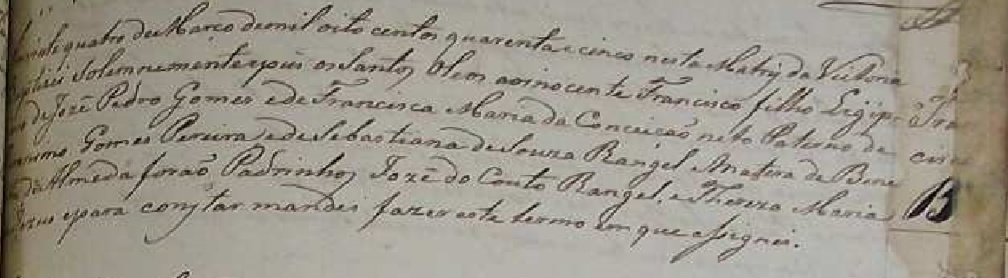 vinte quatro de Março de mil oito centos quarenta e cinco nesta Matriz da Victoria
baptizei Solemnemente e pus os Santos Oleos ao innocente Francisco filho Legiti-
mo de Jozé Pedro Gomes e de Francisca Maria da Conceição neto Paterno de
Gomes Pereira e de Sebastiana de Souza Rangel Materna de Bene
de Almeda forão Padrinhos Jozé do Couto Rangel, e Thereza Maria
e para constar mandei fazer este termo em que assignei.
Fran
B